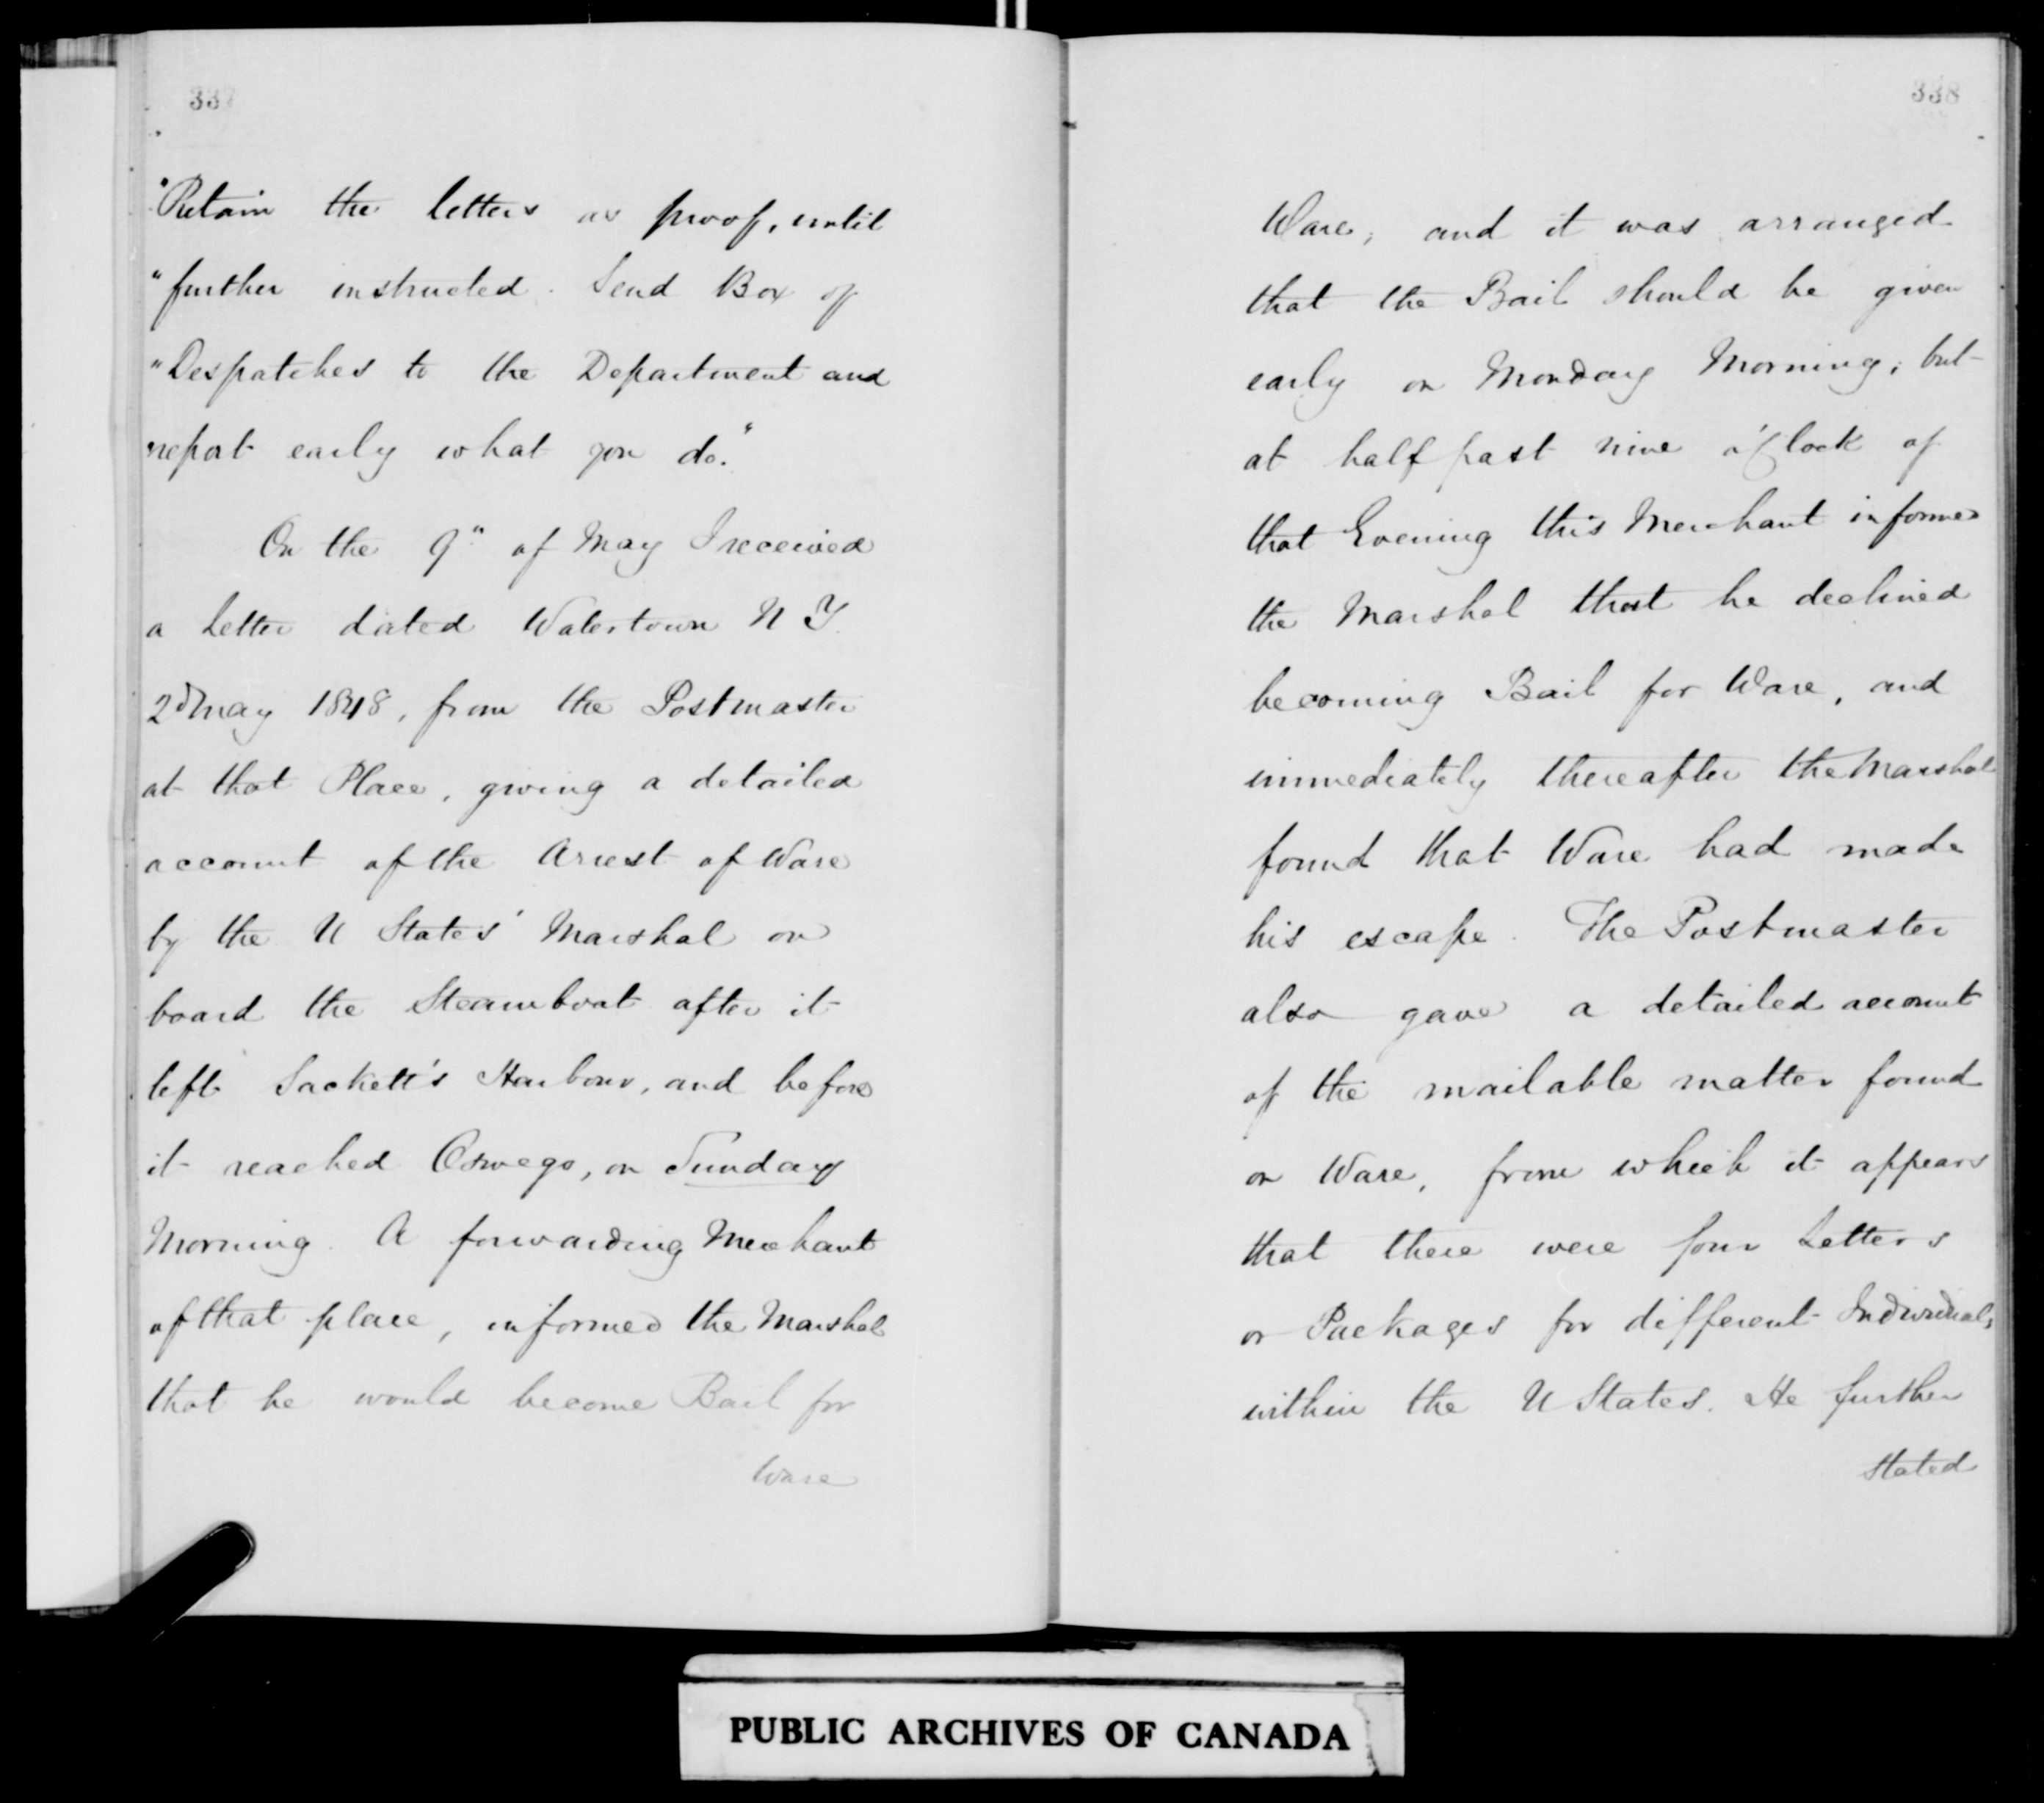 337
"Retain the letters as proof, until
"further instructed. Send Box of
"Despatches to the Department and
"report early what you do."
On the 9" of May I received
a letter dated Watertown N Y.
2d May 1848, from the Postmaster
at that Place, giving a detailed
account of the Arrest of Ware
by the U States' Marshal on
board the Steamboat after it
left Sackett's Harbour, and before
it reached Oswego, on Sunday
Morning. A forwarding Merchant
of that place, informed the Marshal
that he would become Bail for
Ware
338
Ware, and it was arranged
that the Bail should be given
early on Monday Morning; but
at half past nine o'Clock of
that Evening this Merchant informed
the Marshal that he declined
becoming Bail for Ware, and
immediately thereafter the Marshal
found that Ware had made
his escape. The Postmaster
also gave a detailed account
of the mailable matter found
on Ware, from which it appears
that there were four Letters
or Packages for different Individuals,
within the U States. He further
stated
PUBLIC ARCHIVES OF CANADA